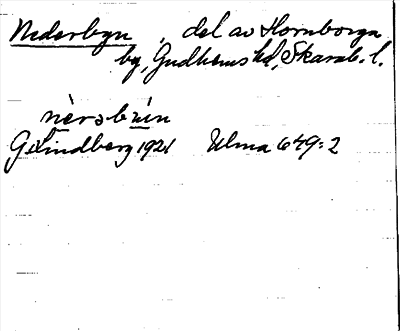 Nederbyn, del av Hornborga
by, Gudhems hd, Skarab. l.
nèrabẙin
G. Lindberg 1921 Ulma 649:2